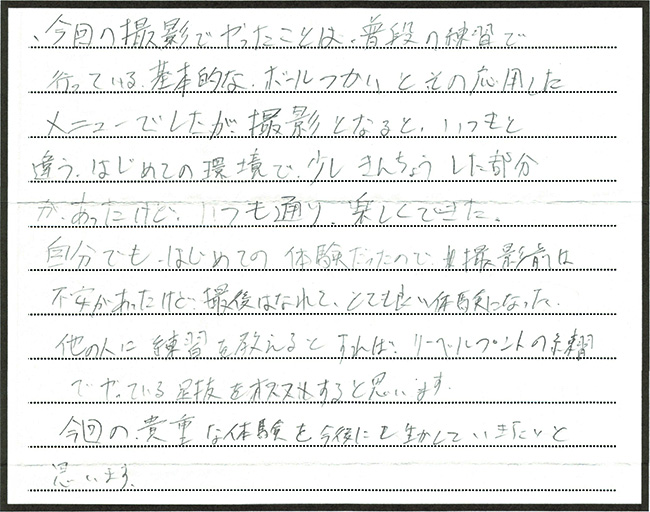 、今回の撮影でやったことは、普段の練習で
行っている、基本的な、ボールつかいとその応用した
メニューでしたが、撮影となると、いつもと
違う、はじめての環境で、少しきんちょうした部分
が、あったけど、いつも通り、楽しくできた。
自分でも、はじめての体験だったので、撮影前は
不安があったけど、最後はなれて、とても良い体験になった。
他の人に練習を教えるとすれば、リーベルプントの練習
でやっている足技をオススメすると思います。
今回の、貴重な体験を今後にも生かしていきたいと
思います。